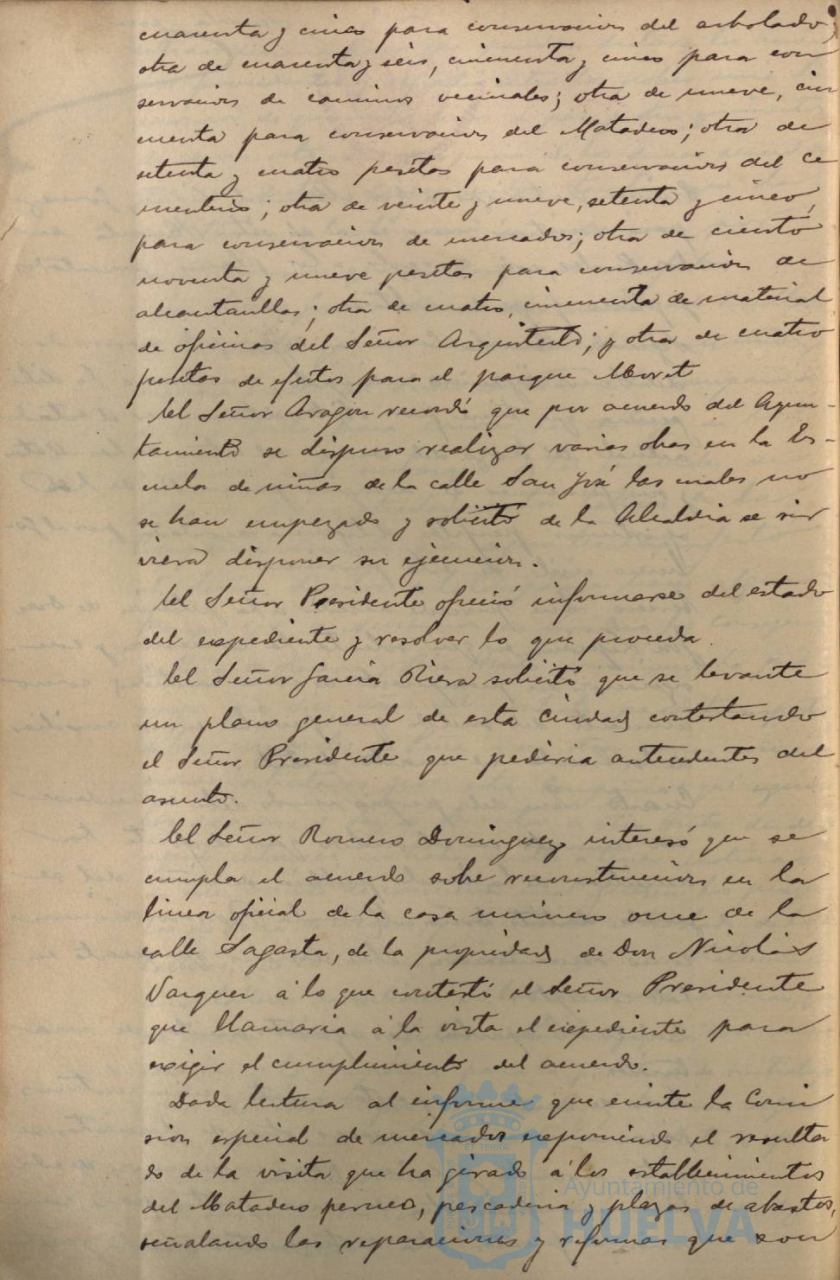 cuarenta y cinco para conservacion del arbolado;
otra de cuarenta y seis, cincuenta y cinco para con
servacion de caminos vecinales; otra de nueve, cin
cuenta para conservacion del Matadero; otra de
setenta y cuatro pesetas para conservacion del ce
menterio; otra de veinte y nueve, setenta y cinco,
para conservacion de mercados; otra de ciento
noventa y nueve pesetas para conservacion de
alcantarillas; otra de cuatro, cincuenta de material
de oficinas del Señor Arquitecto; y otra de cuatro
pesetas de efectos para el parque Moret
El Señor Aragon recordó que por acuerdo del Ayun-
tamiento se dispuso realizar varias obras en la Es-
cuela de niñas de la calle San José las cuales no
se han empezado y solicitó de la Alcaldia se sir
viera disponer su ejecucion.
El Señor Presidente ofreció informarse del estado
del expediente y resolver lo que proceda.
El Señor Garcia Riera solicitó que se levante
un plano general de esta Ciudad contestando
el Señor Presidente que pediria antecedentes del
asunto.
El Señor Romero Dominguez interesó que se
cumpla el acuerdo sobre reconstruccion en la
linea oficial de la casa numero once de la
calle Sagasta, de la propiedad de Don Nicolás
Vazquez á lo que contestó el Señor Presidente
que llamaria á la vista el expediente para
exigir el cumplimiento del acuerdo.
Dada lectura al informe que emite la Comi
sion especial de mercados exponiendo el resulta
do de la visita que ha girado á los establecimientos
del Matadero perneo, pescaderia y plazas de abastos,
señalando las reparaciones y reformas que son
Ayuntamiento de
HUELVA